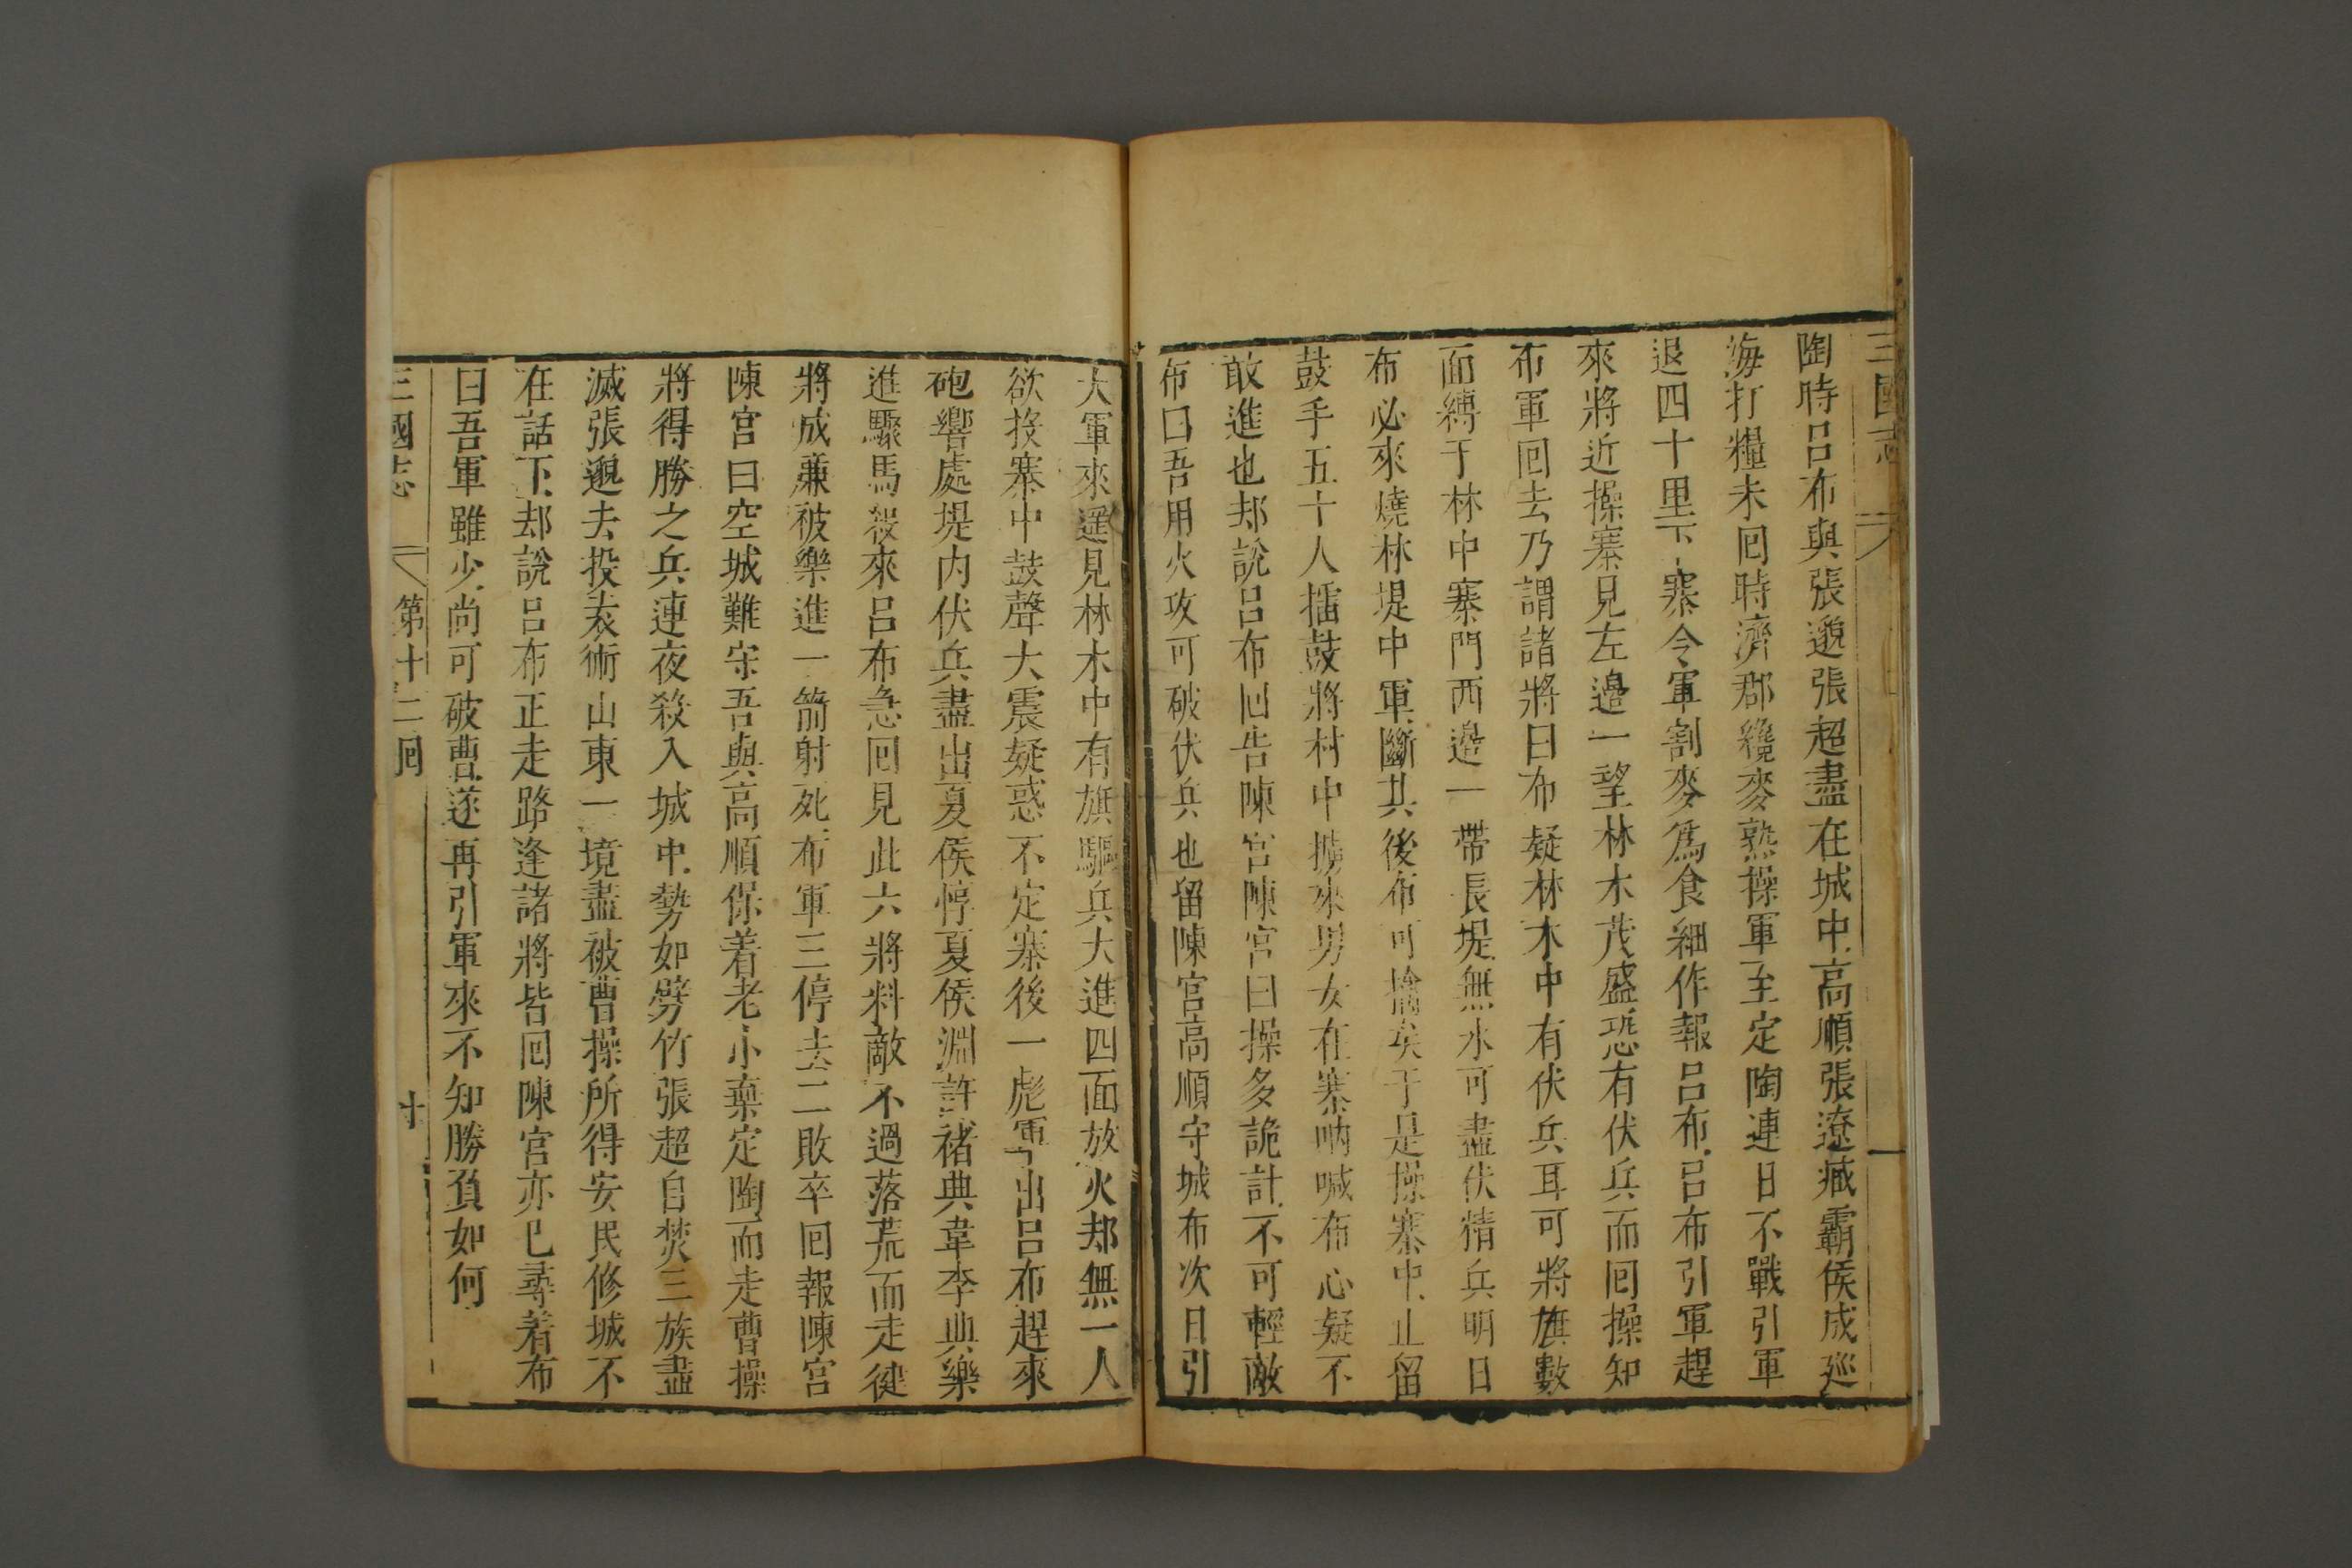 三國志
陶時呂布與張邈張超盡在城中高順張遼臧霸侯成廵
海打糧未囘時濟郡纔麥熟操軍至定陶連日不戰引軍
退四十里下寨令軍割麥爲食細作報呂布呂布引軍趕
來將近操寨見左邉一望林木茂盛恐有伏兵而囘操知
布軍囘去乃謂諸將曰布疑林木中有伏兵耳可將旗數
面縛于林中寨門西邉一帶長堤無水可盡伏精兵明日
布必來燒林堤中軍斷其後布可擒矣于是操寨中止留
鼓手五十人擂鼓將村中擄來男女在寨吶喊布心疑不
敢進也却說呂布囘告陳宮陳宮曰操多詭計不可輕敵
布曰吾用火攻可破伏兵也留陳宮高順守城布次日引
大軍來遥見林木中有旗驅兵大進四面放火却無一人
欲投寨中鼓聲大震疑惑不定寨後一彪軍出呂布趕來
砲響處堤内伏兵盡出夏侯惇夏侯淵許褚典韋李典樂
進驟馬殺來呂布急囘見此六將料敵不過落荒而走從
將成廉被樂進一箭射死布軍三停去二敗卒囘報陳宮
陳宮曰空城難守吾與高順保着老小棄定陶而走曹操
將得勝之兵連夜殺入城中勢如劈竹張超自焚三族盡
滅張邈去投袁術山東一境盡被曹操所得安民修城不
在話下却說呂布正走路逢諸將皆囘陳宮亦已尋着布
曰吾軍雖少尚可破曹遂再引軍來不知勝負如何
三國志 第十二囘 十